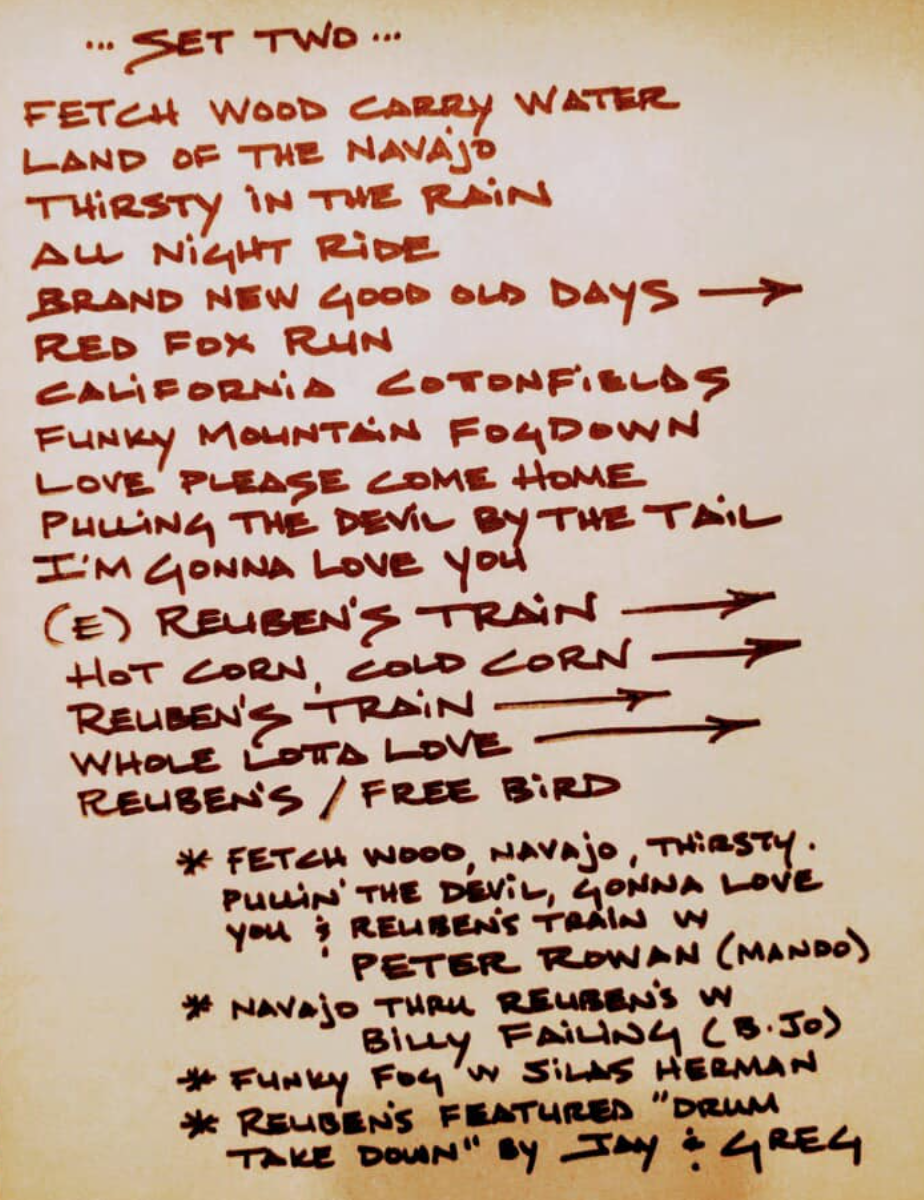 ... SET TWO ...
FETCH WOOD CARRY WATER
LAND OF THE NAVAJO
THIRSTY IN THE RAIN
ALL NIGHT RIDE
BRAND NEW GOOD OLD DAYS →
RED FOX RUN
CALIFORNIA COTTONFIELDS
FUNKY MOUNTAIN FOGDOWN
LOVE PLEASE COME HOME
PULLING THE DEVIL BY THE TAIL
I'M GONNA LOVE YOU
(E) REUBEN'S TRAIN →
HOT CORN, COLD CORN →
REUBEN'S TRAIN →
WHOLE LOTTA LOVE →
REUBEN'S / FREE BIRD
* FETCH WOOD, NAVAJO, THIRSTY.
PULLIN' THE DEVIL, GONNA LOVE
YOU & REUBEN'S TRAIN W
PETER ROWAN (MANDO)
* NAVAJO THRU REUBEN'S W
BILLY FAILING (B.JO)
* FUNKY FOG W SILAS HERMAN
* REUBEN'S FEATURED "DRUM
TAKE DOWN" BY JAY & GREG